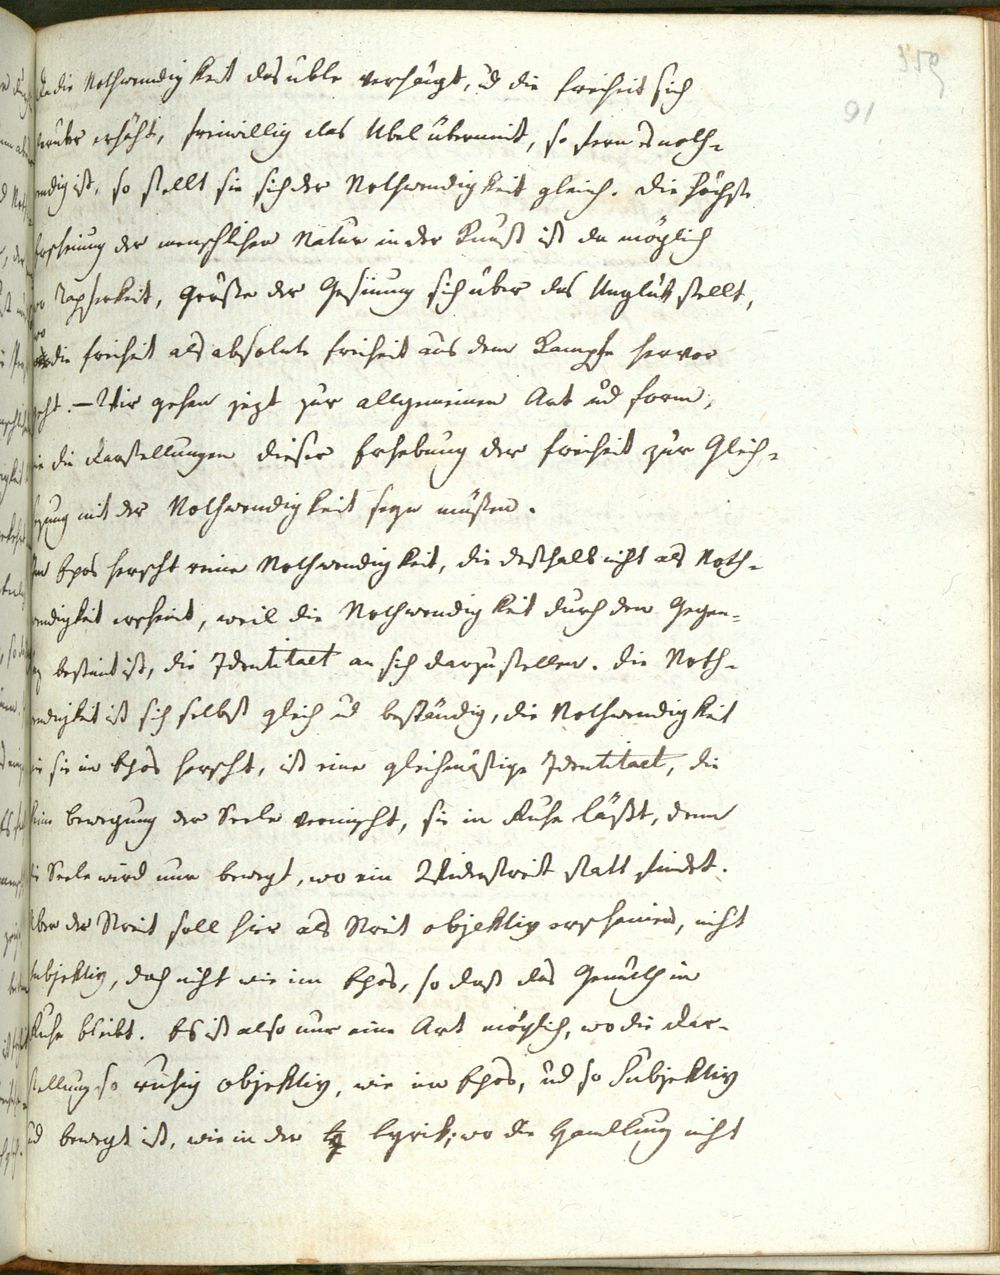 359
91
die Nothwendigkeit das uble verhängt, ud die Freiheit sich
erhöht, freiwillig das Ubel übernimt, so fern es noth-
wendig ist, so stellt sie sich der Nothwendigkeit gleich. die höchste
Erscheinung der menschlichen Natur in der Kunst ist da möglich
wo Tapferkeit, Größe der Gesinung sich über das Unglük stellt,
die Freiheit als absolute Freiheit aus dem Kampfe hervor
geht. – Wir gehen jezt zur allgemeinen Art ud Form,
wie die darstellungen dieser Erhebung der Freiheit zur Gleich-
mit der Nothwendigkeit seyn müßen.
Im Epos herscht reine Nothwendigkeit, die deshalb nicht als Noth-
wendigkeit erscheint, weil die Nothwendigkeit durch den Gegen-
satz bestimt ist, die Identitaet an sich darzustellen. die Noth-
wendigkeit ist sich selbst gleich ud beständig, die Nothwendigkeit
wie sie im Epos herscht, ist eine gleichmäßige Identitaet, die
keine bewegung der Seele verursacht, sie in Ruhe läßt, denn
die Seele wird nur bewegt, wo ein Widerstreit statt findet.
Aber der Streit soll hier als Streit objektiv erscheinen, nicht
subjektiv, doch nicht wie im Epos, so daß das Gemüth in
Ruhe bleibt. Es ist also nur eine Art möglich, wo die dar-
stellung so ruhig objektiv, wie im Epos, ud so Subjektiv
ud bewegt ist, wie in der Lyrik; wo die Handlung nicht